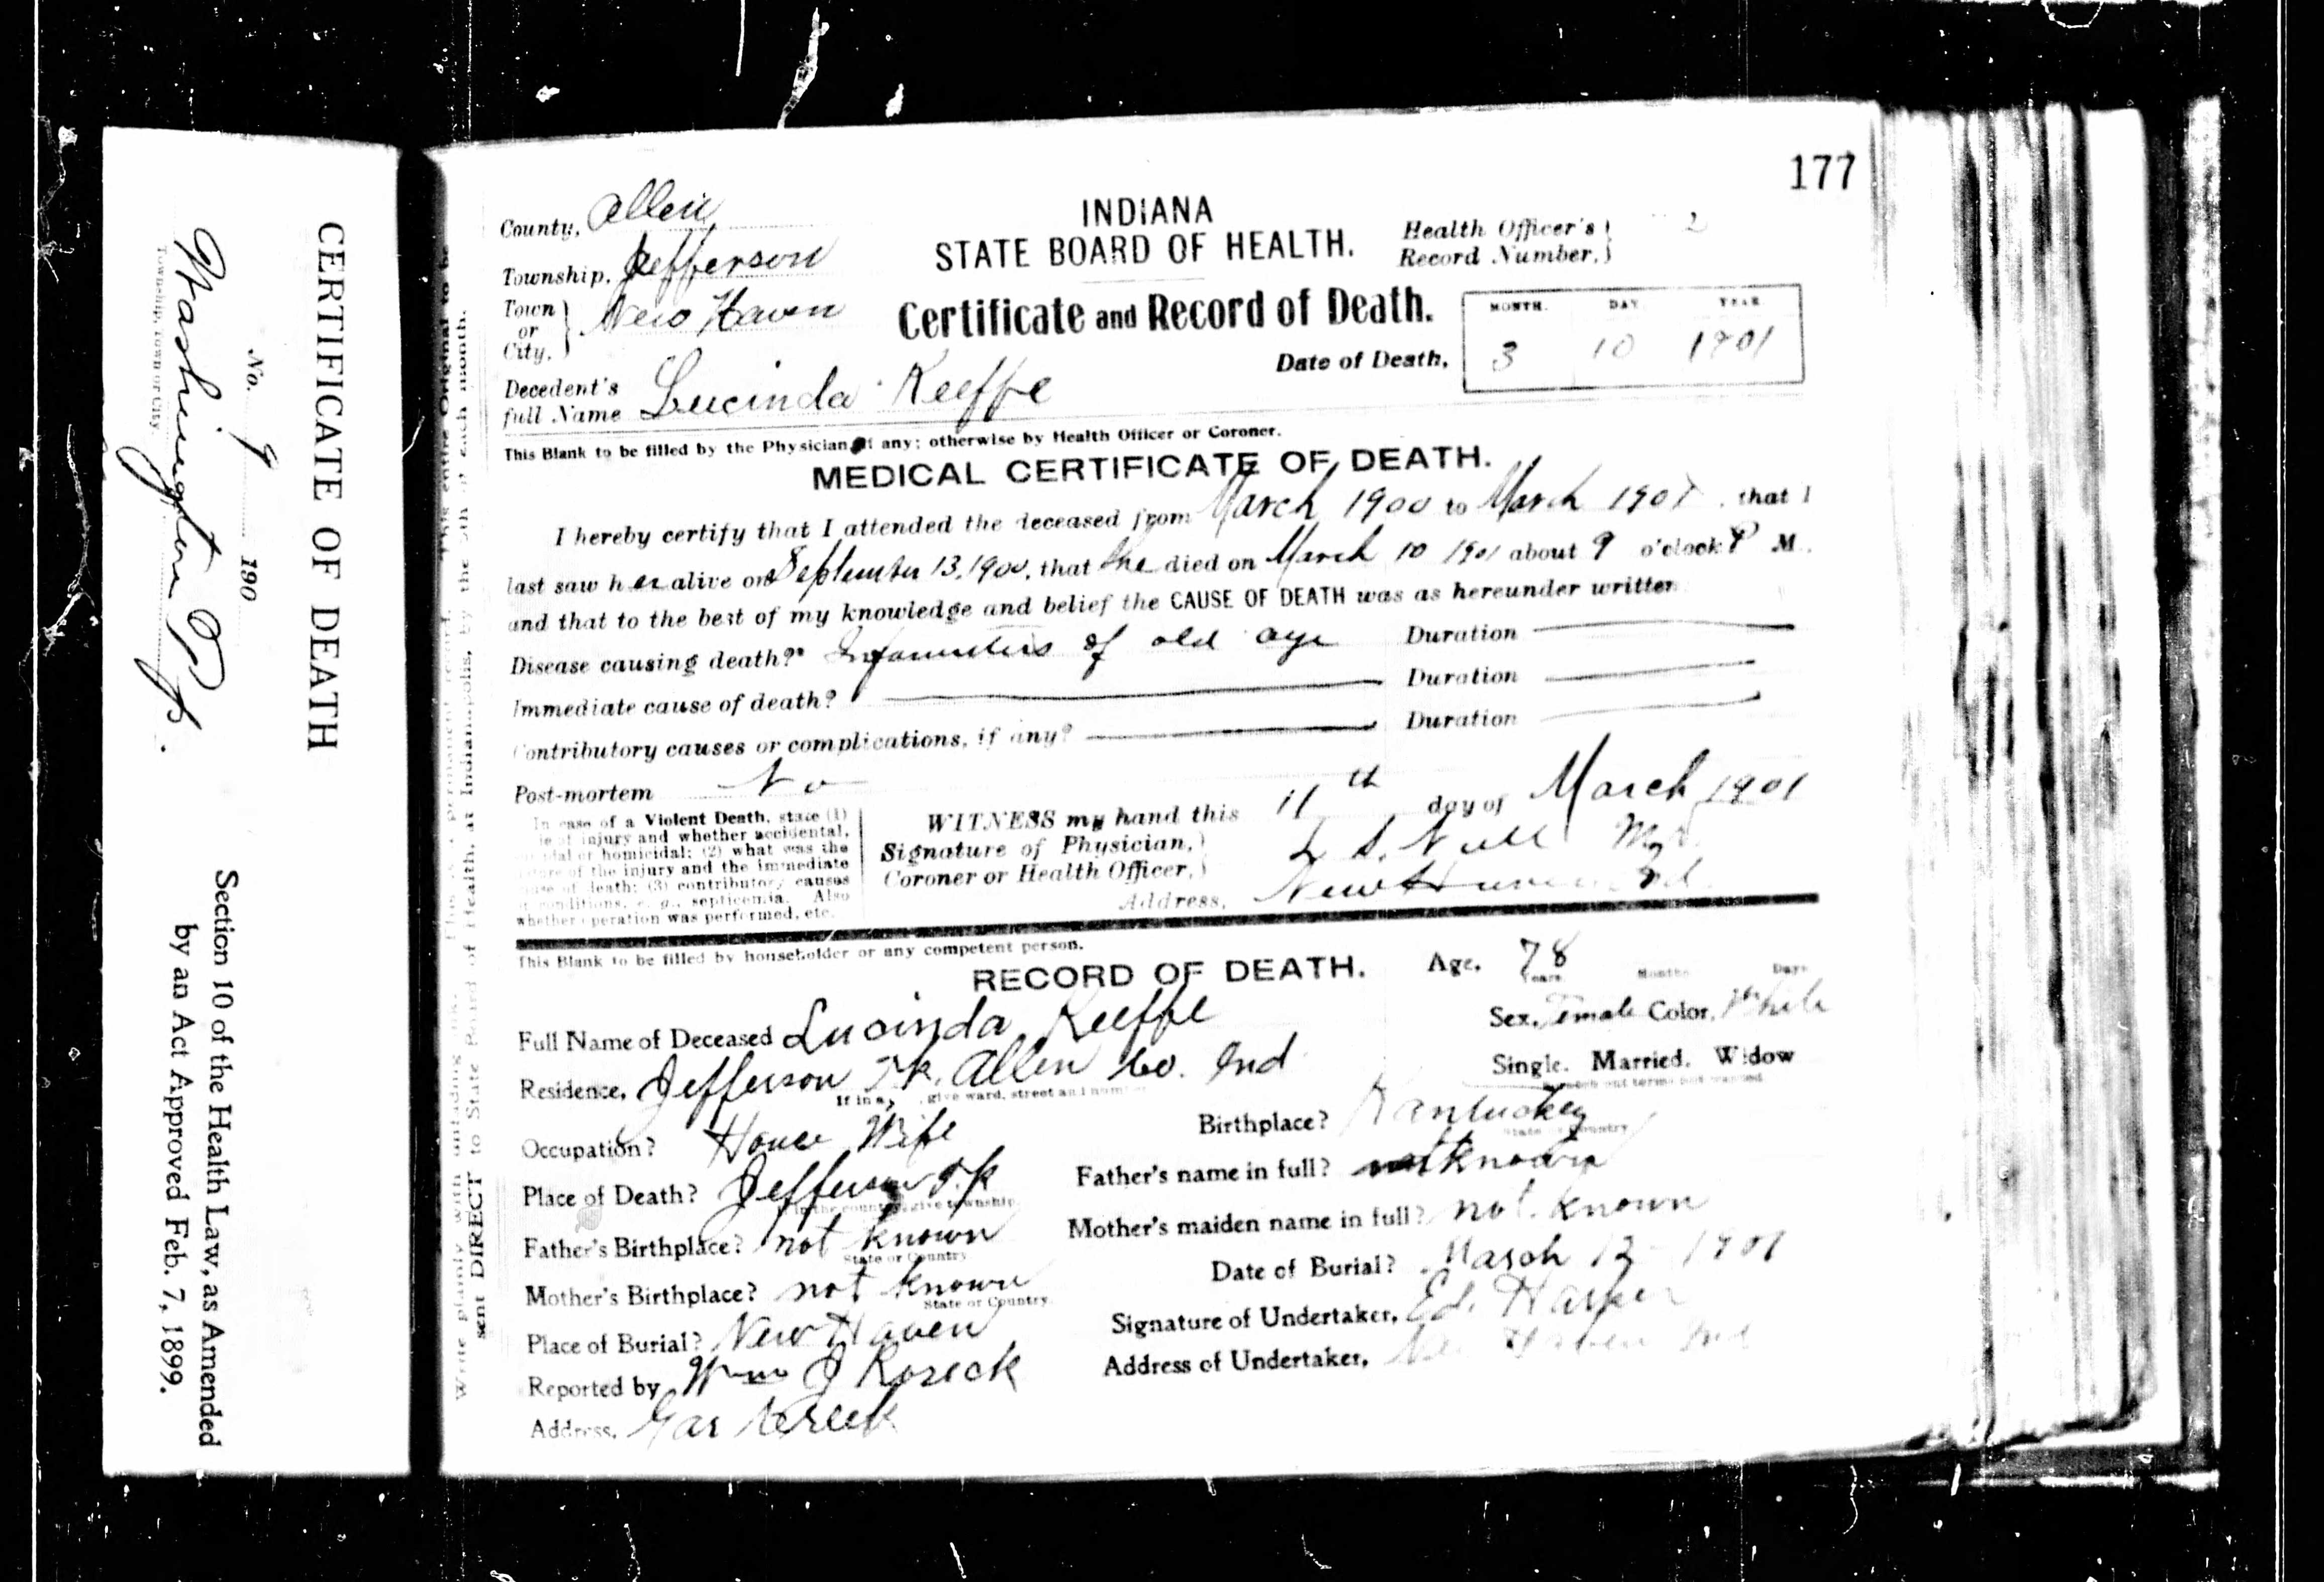 177
County, Allen
INDIANA
STATE BOARD OF HEALTH.
Health Officer's
Record Number, 2
Township, Jefferson
Town
or
City, New Haven
Certificate and Record of Death.
MONTH. DAY YEAR
Date of Death, 3 10 1901
Decedent's
full Name Lucinda Keeffe
This Blank to be filled by the Physician, if any; otherwise by Health Officer or Coroner.
MEDICAL CERTIFICATE OF DEATH.
I hereby certify that I attended the deceased from March 1900 to March 1901, that I
last saw her alive on September 13, 1900, that she died on March 10 1901 about 9 o'clock P M.
and that to the best of my knowledge and belief the CAUSE OF DEATH was as hereunder written
Disease causing death? of old age Duration
Immediate cause of death? Duration
Contributory causes or complications, if any? Duration
Post-mortem No
In case of a Violent Death, state (1)
of injury and whether accidental,
or homicidal; (2) what was the
of the injury and the immediate
of death; (3) contributory causes
or conditions, e. g., septicemia. Also
whether operation was performed, etc.
WITNESS my hand this 11th day of March 1901
Signature of Physician,
Coroner or Health Officer, L S. Null M.D.
Address, New Haven Ind
This Blank to be filled by householder or any competent person.
RECORD OF DEATH.
Age, 78
Years Months Days
Full Name of Deceased Lucinda Keeffe
Sex, Female Color, White
Residence, Jefferson Tp. Allen Co. Ind
If in a , give ward, street and number
Single. Married. Widow
Occupation? House Wife
Birthplace? Kantuckey
State or Country
Place of Death? Jefferson T.p
If in the country, give township
Father's name in full? not known
Father's Birthplace? not known
State or Country
Mother's maiden name in full? not known
Mother's Birthplace? not known
State or Country
Date of Burial? March 12 1901
Place of Burial? New Haven
Signature of Undertaker, Ed. Harper
Reported by Wm J Roseck
Address of Undertaker, New Haven Ind
Address, Gar Creek
CERTIFICATE OF DEATH
No. 9 190
Washington Tp.
Township, Town or City
Section 10 of the Health Law, as Amended
by an Act Approved Feb. 7, 1899.